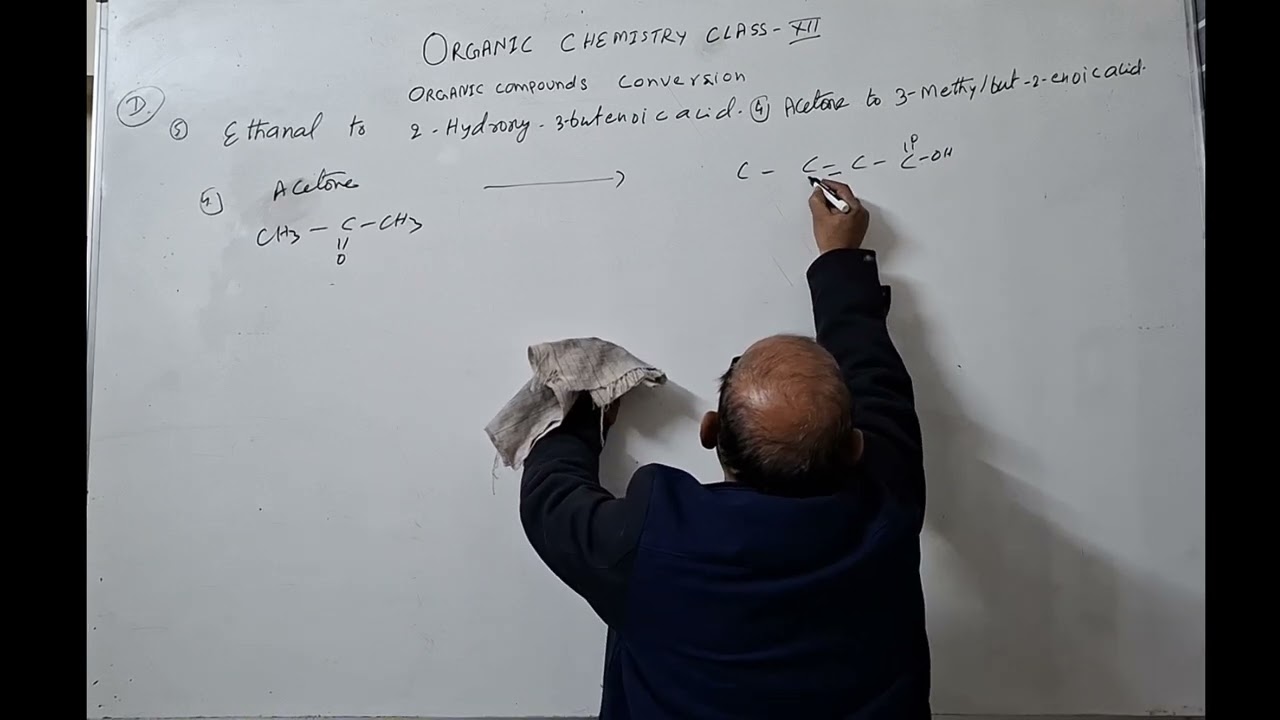 ORGANIC CHEMISTRY CLASS-XII
ORGANIC COMPOUNDS CONVERSION
D.
⑤ Ethanal to 2-Hydroxy-3-butenoic acid. ④ Acetone to 3-Methylbut-2-enoic acid.
④ Acetone ⟶ C - C = C - C - OH
O
CH3 - C - CH3
O